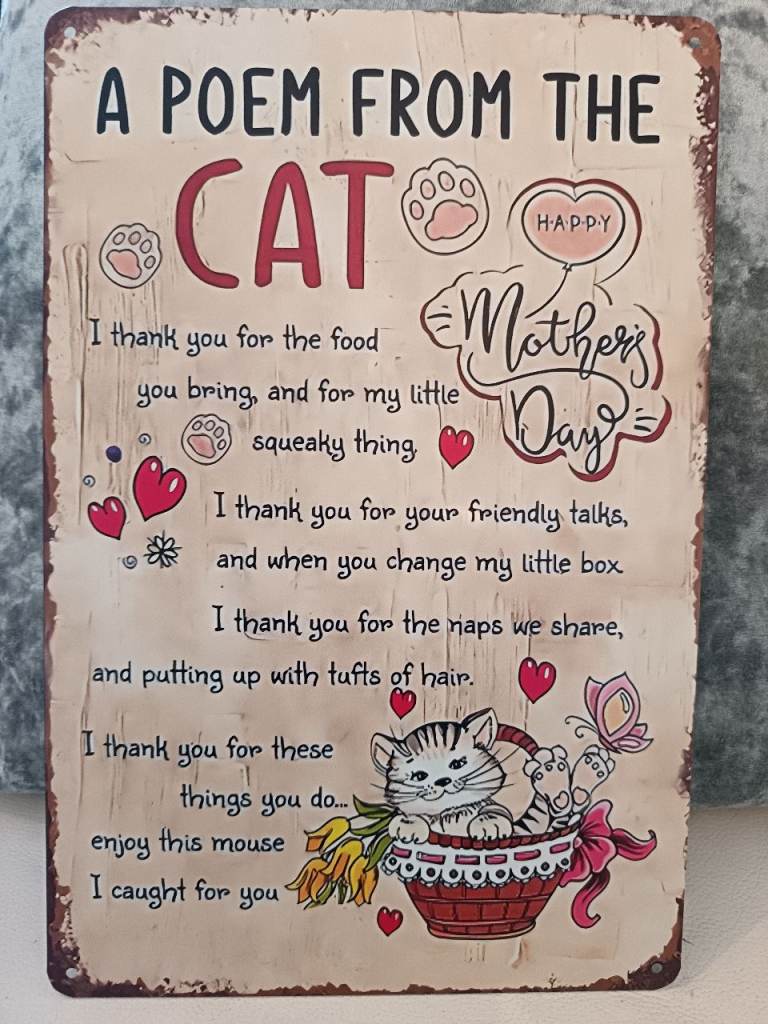 A POEM FROM THE
CAT
H·A·P·P·Y
Mother's
Day
I thank you for the food
you bring, and for my little
squeaky thing.
I thank you for your friendly talks,
and when you change my little box
I thank you for the naps we share,
and putting up with tufts of hair.
I thank you for these
things you do...
enjoy this mouse
I caught for you